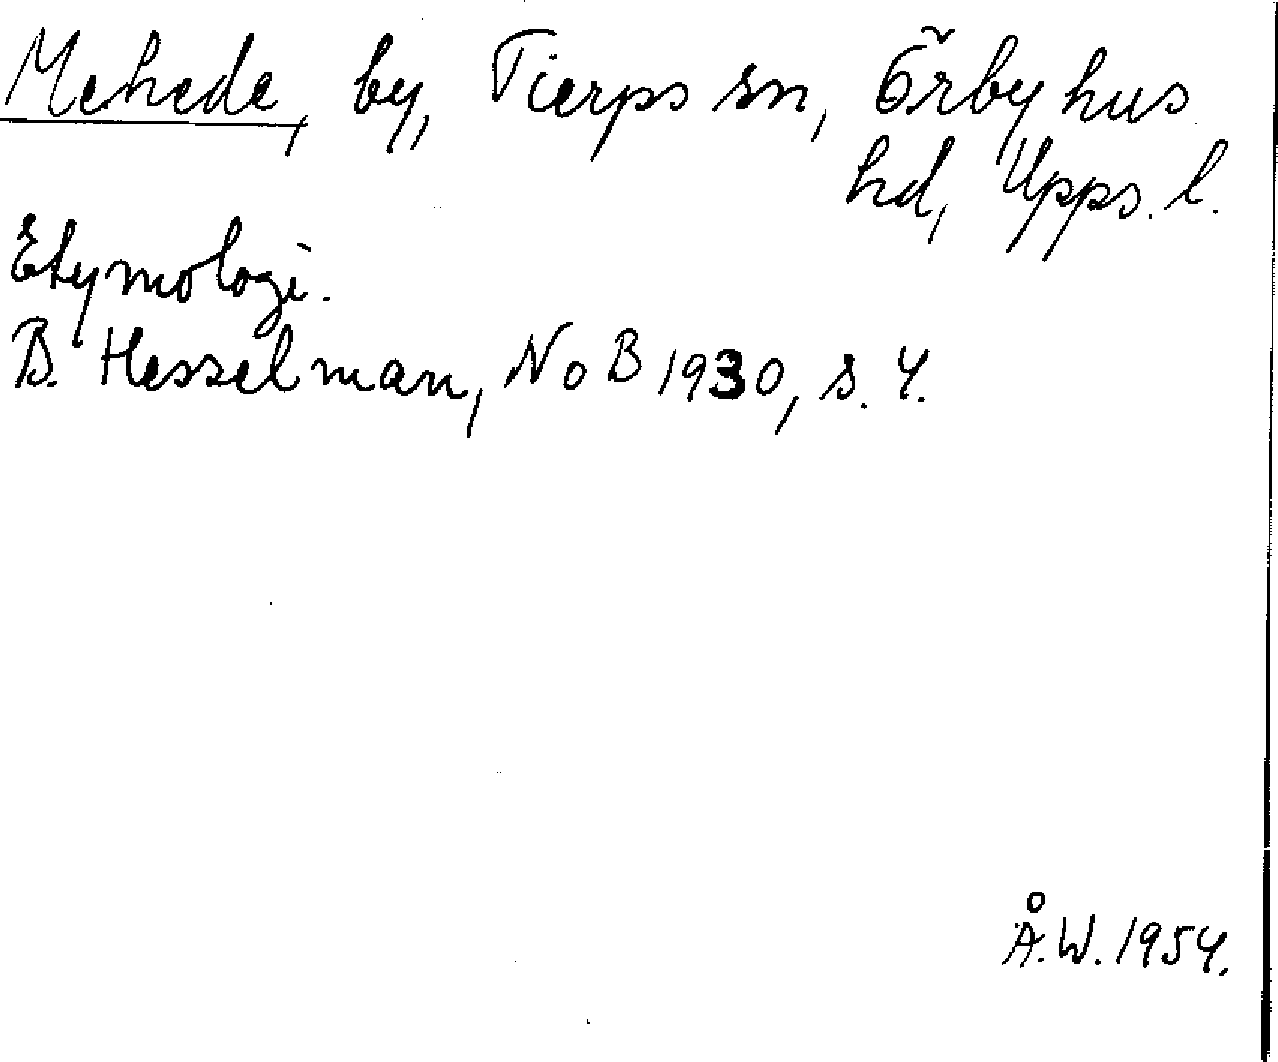 Mehede, by, Tierps sn, Örbyhus
hd, Upps. l.
Etymologi.
B. Hesselman, NoB 1930, s. 4.
Å.W. 1954.